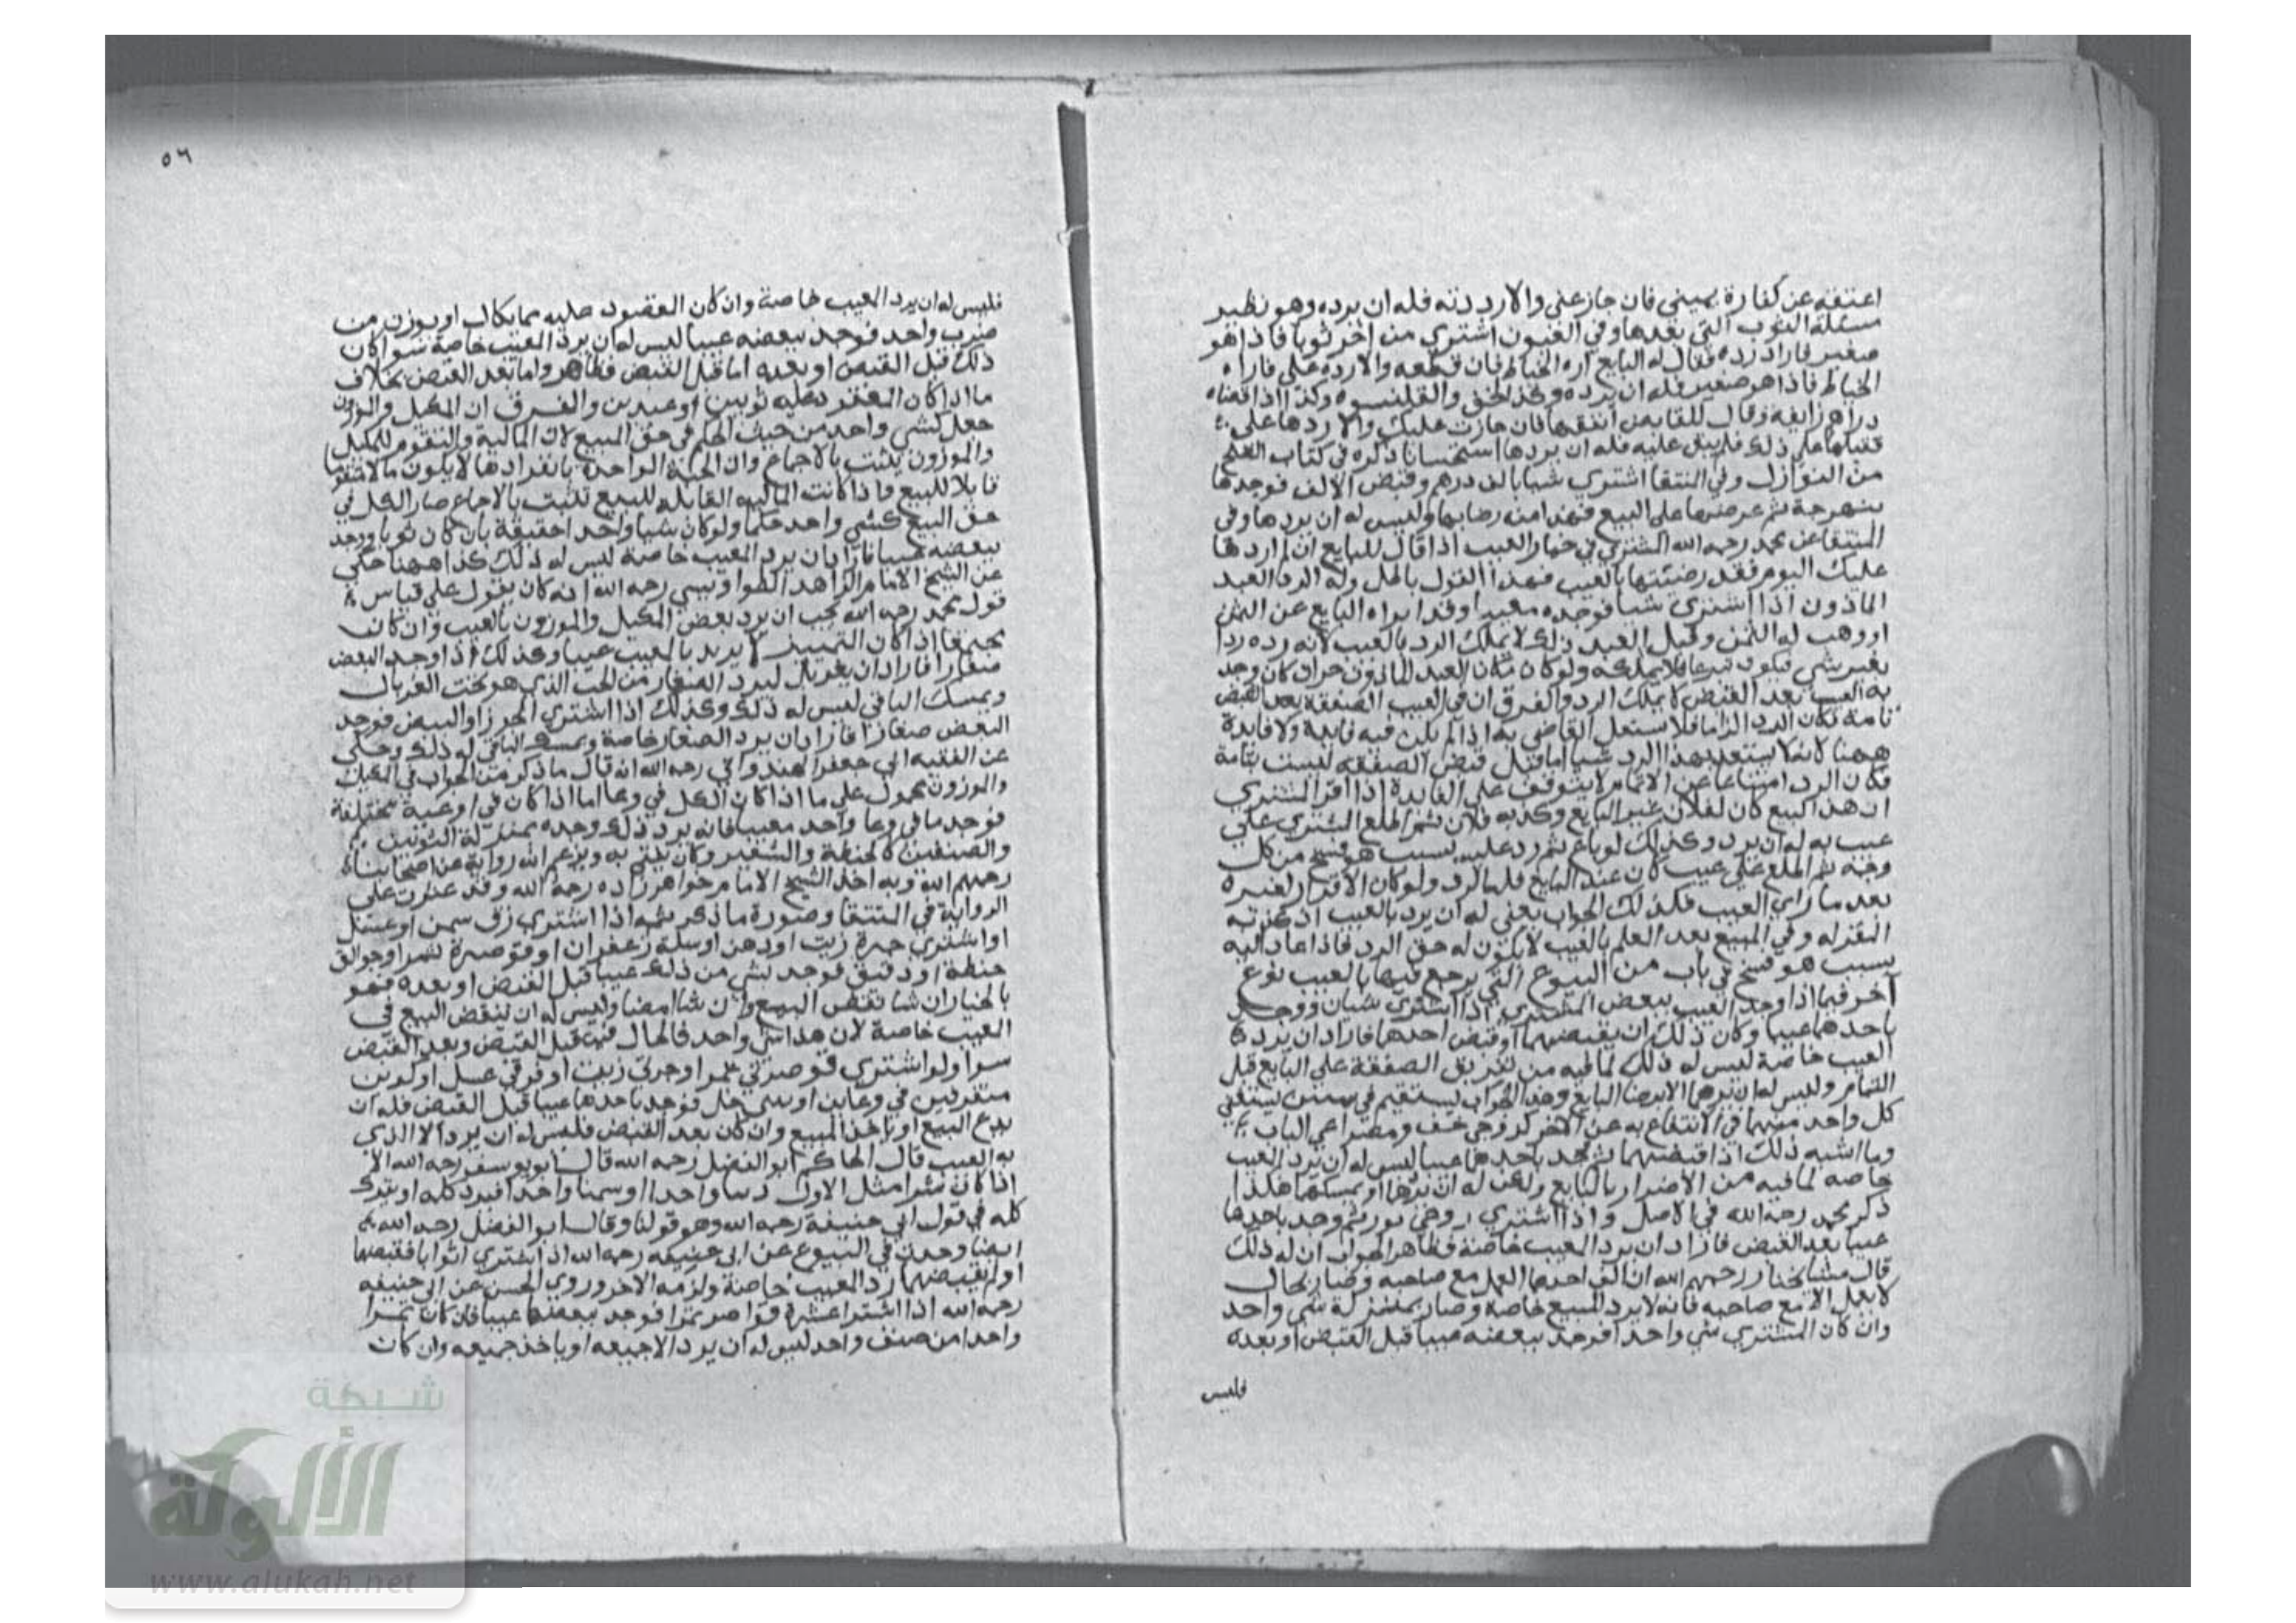 اعتقه عن كفارة يميني فان جاز عني والا رددته فله ان يرده وهو نظير
مسئلة الثوب التي بعدها وفي العيون اشتري من اخر ثوبا فاذا هو
صغير فاراد رده فقال له البايع اره الخياط فان قطعه والا رده علي فاراه
الخياط فاذا هو صغير فله ان يرده وكذا الخف والقلنسوه وكذا اذا قضاه
دراهم زايفة وقال للقابض انفقها فان جازت عليك والا ردها علي
فقبلها علي ذلك فلم ينفق عليه فله ان يردها استحسانا ذكره في كتاب الصلح
من النوازل وفي المنتقا اشتري شيا بالف درهم وقبض الالف فوجدها
نبهرجة ثم عرضها علي البيع فهذا منه رضا بها وليس له ان يردها وفي
المنتقا عن محمد رحمه الله المشتري في خيار العيب اذا قال للبايع ان لم اردها
عليك اليوم فقد رضيتها بالعيب فهذا القول باطل وله الرد العبد
الماذون اذا اشتري شيا فوجده معيبا وقد ابراه البايع عن الثمن
او وهب له الثمن وقبل العبد ذلك لا يملك الرد بالعيب لانه رده ردا
بغير شي فيكون تبرعا فلا يملكه ولو كان مكان العبد الماذون حرا ان كان وجد
به العيب بعد القبض لا يملك الرد والفرق ان في العيب الصفقة بعد القبض
تامة فلا يشتغل القاضي به اذا لم يكن فيه فايدة ولا فايدة
ههنا لانه لا يستفيد بهذا الرد شيا اما قبل قبض الصفقه ليست بتامة
فكان الرد امتناعا عن الاتمام لا يتوقف علي الفايدة اذا اقر المشتري
ان هذا البيع كان لفلان غير البايع وكذبه فلان ثم اطلع المشتري علي
عيب به له ان يرد وكذلك لو باع ثم رد عليه بسبب هو فسخ من كل
وجه ثم اطلع علي عيب كان عند البايع فله الرد ولو كان الاقرار لغيره
بعد ما راي العيب فكذلك الجواب يعني له ان يرد بالعيب اذ كذبه
المقر له وفي المبيع بعد العلم بالعيب لا يكون له حق الرد فاذا عاد اليه
بسبب هو فسخ في باب من البيوع التي يرجع فيها بالعيب نوع
آخر فيما اذا وجد العيب ببعض المشتري اذا اشتري شيان ووجد
باحدهما عيبا وكان ذلك ان يقبضهما او قبض احدهما فاراد ان يرد
العيب خاصة ليس له ذلك لما فيه من تفريق الصفقة علي البايع قبل
التمام وليس له ان يردها الا برضا البايع وهذا الجواب يستقيم في شيئين يستغني
كل واحد منهما في الانتفاع به عن الاخر كزوجي خف ومصراعي الباب
وما اشبه ذلك اذا قبضهما ثم يجد باحدهما عيبا ليس له ان يرد العيب
خاصه لما فيه من الاضرار بالبايع ولكن له ان يردها او يمسكها هكذا
ذكر محمد رحمه الله في الاصل واذا اشتري زوجي ثور ثم وجد باحدها
عيبا بعد القبض فاراد ان يرد المعيب خاصة فظاهر الجواب ان له ذلك
قال مشايخنا رحمهم الله ان الف احدهما العمل مع صاحبه وصار بحال
لا يعمل الا مع صاحبه فانه لا يرد المبيع خاصة وصار بمنزلة شي واحد
وان كان المشتري شي واحدا فوجد ببعضه عيبا قبل القبض او بعده
فليس
٥٦
فليس له ان يرد المعيب خاصة وان كان المعقود عليه مما يكال او يوزن من
ضرب واحد فوجد ببعضه عيبا ليس له ان يرد المعيب خاصة سوا كان
ذلك قبل القبض او بعده اما قبل القبض فظاهر واما بعد القبض بخلاف
ما اذا كان المعقود عليه ثوبين او عبدين والفرق ان المكيل والموزون
جعل كشي واحد من حيث الحكم في حق المبيع لان المالية والتقوم للمكيل
والموزون يثبت بالاجماع وان الحبة الواحدة بانفرادها لا يكون مالا متقوما
قابلا للبيع فاذا كانت المالية القابلة للبيع تثبت بالاجماع صار الكل في
حق البيع كشي واحد حكما ولو كان شيا واحدا حقيقة بان كان ثوبا ووجد
ببعضه عيبا فاراد ان يرد المعيب خاصة ليس له ذلك كذا ههنا حكي
عن الشيخ الامام الزاهد رحمه الله انه كان يقول علي قياس
قول محمد رحمه الله يجب ان يرد بعض المكيل والموزون بالعيب وان كان
مجتمعا اذا كان التمييز لا يزيد بالمعيب عيبا وكذلك اذا وجد البعض
صغارا فاراد ان يغربل ليرد الصغار من الحب الذي هو تحت الغربال
ويمسك الباقي ليس له ذلك وكذلك اذا اشتري الجوز او البيض فوجد
البعض صغارا فاراد ان يرد الصغار خاصة ويمسك الباقي له ذلك وحكي
عن الفقيه ابي جعفر الهندواني رحمه الله انه قال ما ذكر من الجواب في المكيل
والموزون محمول علي ما اذا كان الكل في وعا اما اذا كان في اوعية مختلفة
فوجد ما في وعا واحد معيبا فانه يرد ذلك وحده بمنزلة الثوبين
والصنفين كالحنطة والشعير وكان يفتي به ويزعم انه رواية عن اصحابنا
رحمهم الله وبه اخذ الشيخ الامام خواهر زاده رحمه الله وقد عثرت علي
الرواية في المنتقا وصورة ما ذكر ثمه اذا اشتري زق سمن او عسل
او اشتري جرة زيت او دهن او سلة زعفران او قوصرة تمر او جوالق
حنطة او دقيق فوجد بشي من ذلك عيبا قبل القبض او بعده فهو
بالخيار ان شا نقض البيع وان شا امضا وليس له ان ينقض البيع في
العيب خاصة لان هذا شي واحد فالحال فيه قبل القبض وبعد القبض
سوا ولو اشتري قوصرتي تمر او جرتي زيت او زقي عسل او
متفرقين في وعاين او خل فوجد باحدهما عيبا قبل القبض فله ان
يدع البيع او ياخذ المبيع وان كان بعد القبض فليس له ان يرد الا الذي
به العيب قال الحاكم ابو الفضل رحمه الله قال ابو يوسف رحمه الله
اذا كان تمرا مثل الاول واحدا او سمنا واحدا فيرد كله او يترك
كله في قول ابي حنيفة رحمه الله وهو قولنا وقال ابو الفضل رحمه الله
ايضا وجدت في البيوع عن ابي حنيفه رحمه الله اذا اشتري اثوابا فقبضها
او لم يقبضهما رد المعيب خاصة ولزمه الاخر وروي الحسن عن ابي حنيفه
رحمه الله اذا اشترا عشرة قواصر تمرا فوجد ببعضها عيبا فان كان تمرا
واحدا من صنف واحد ليس له ان يرد الا جميعه او ياخذ جميعه وان كان
شبكة
الألوكة
www.alukah.net